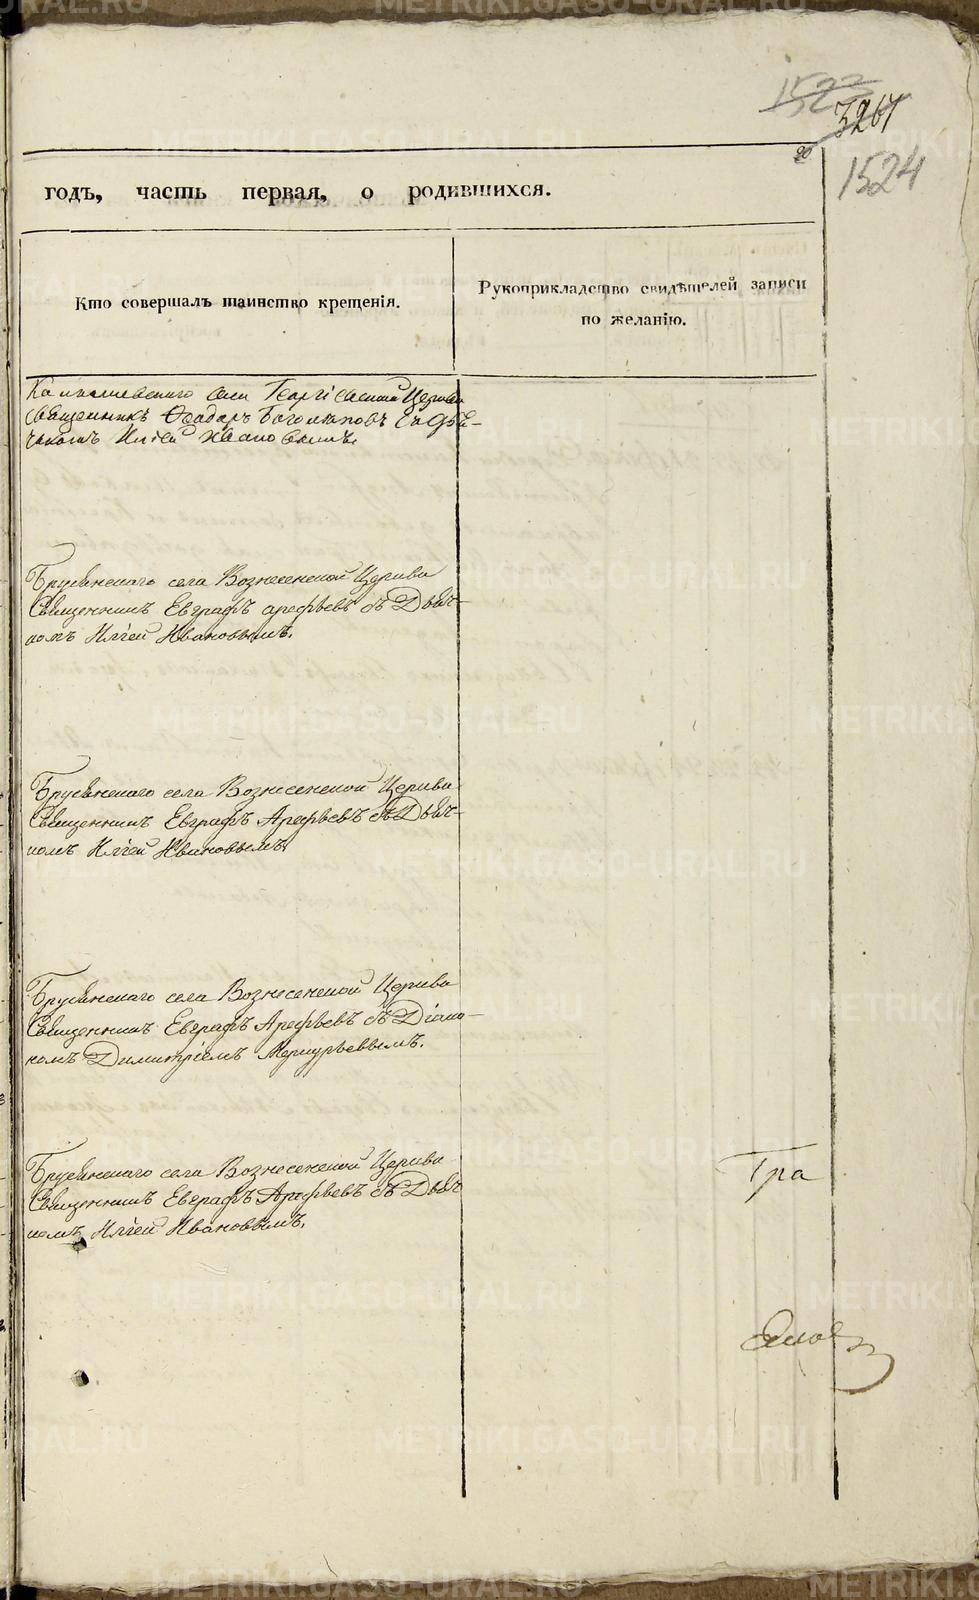 1522
3267
20
1524
годъ, часть первая, о родившихся.
Кто совершалъ таинство крещенія.
Рукоприкладство свидѣтелей записи
по желанію.
села Георгіевской Церкви
Священникъ Ѳеодоръ Боголѣповъ съ Дья-
Бруснскаго села Вознесенской Церкви
Священникъ Евграфъ Арефьевъ съ Дьяч-
комъ Иліей Ивановымъ.
Бруснскаго села Вознесенской Церкви
Священникъ Евграфъ Арефьевъ съ Дьяч-
комъ Иліей Ивановымъ.
Бруснскаго села Вознесенской Церкви
Священникъ Евграфъ Арефьевъ съ Діако-
номъ Димитріемъ Меркурьевымъ.
Бруснскаго села Вознесенской Церкви
Священникъ Евграфъ Арефьевъ съ Дьяч
комъ Иліей Ивановымъ.
Гра
METRIKI.GASO-URAL.RU